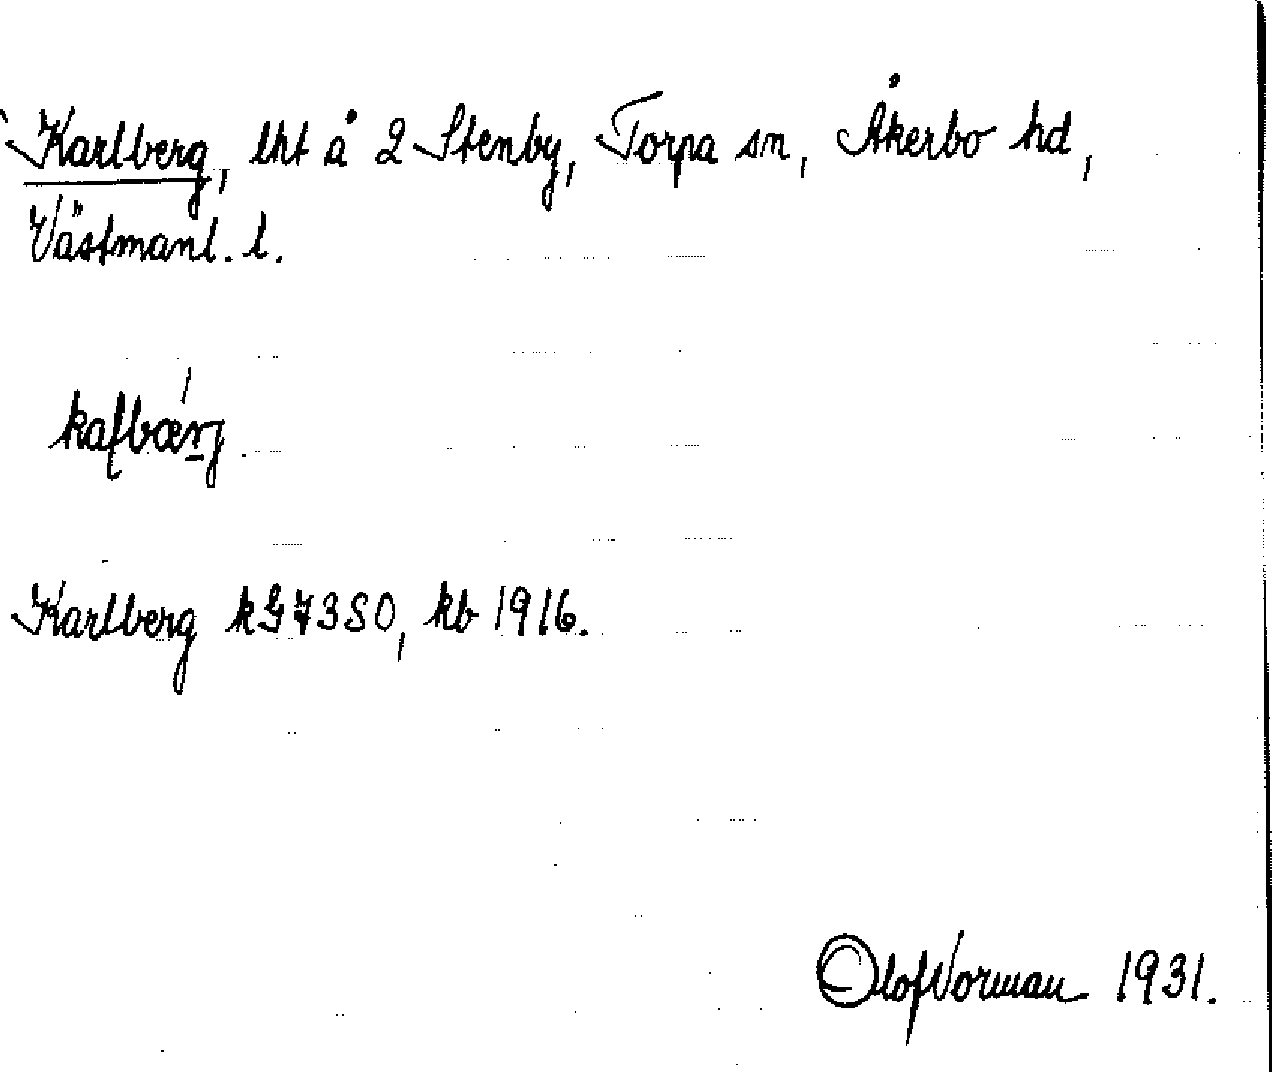 Karlberg, lht å 2 Stenby, Torpa sn, Åkerbo hd,
Västmanl. l.
kaɭbærj.
Karlberg kG 7380, kb 1916.
Olof Norman 1931.